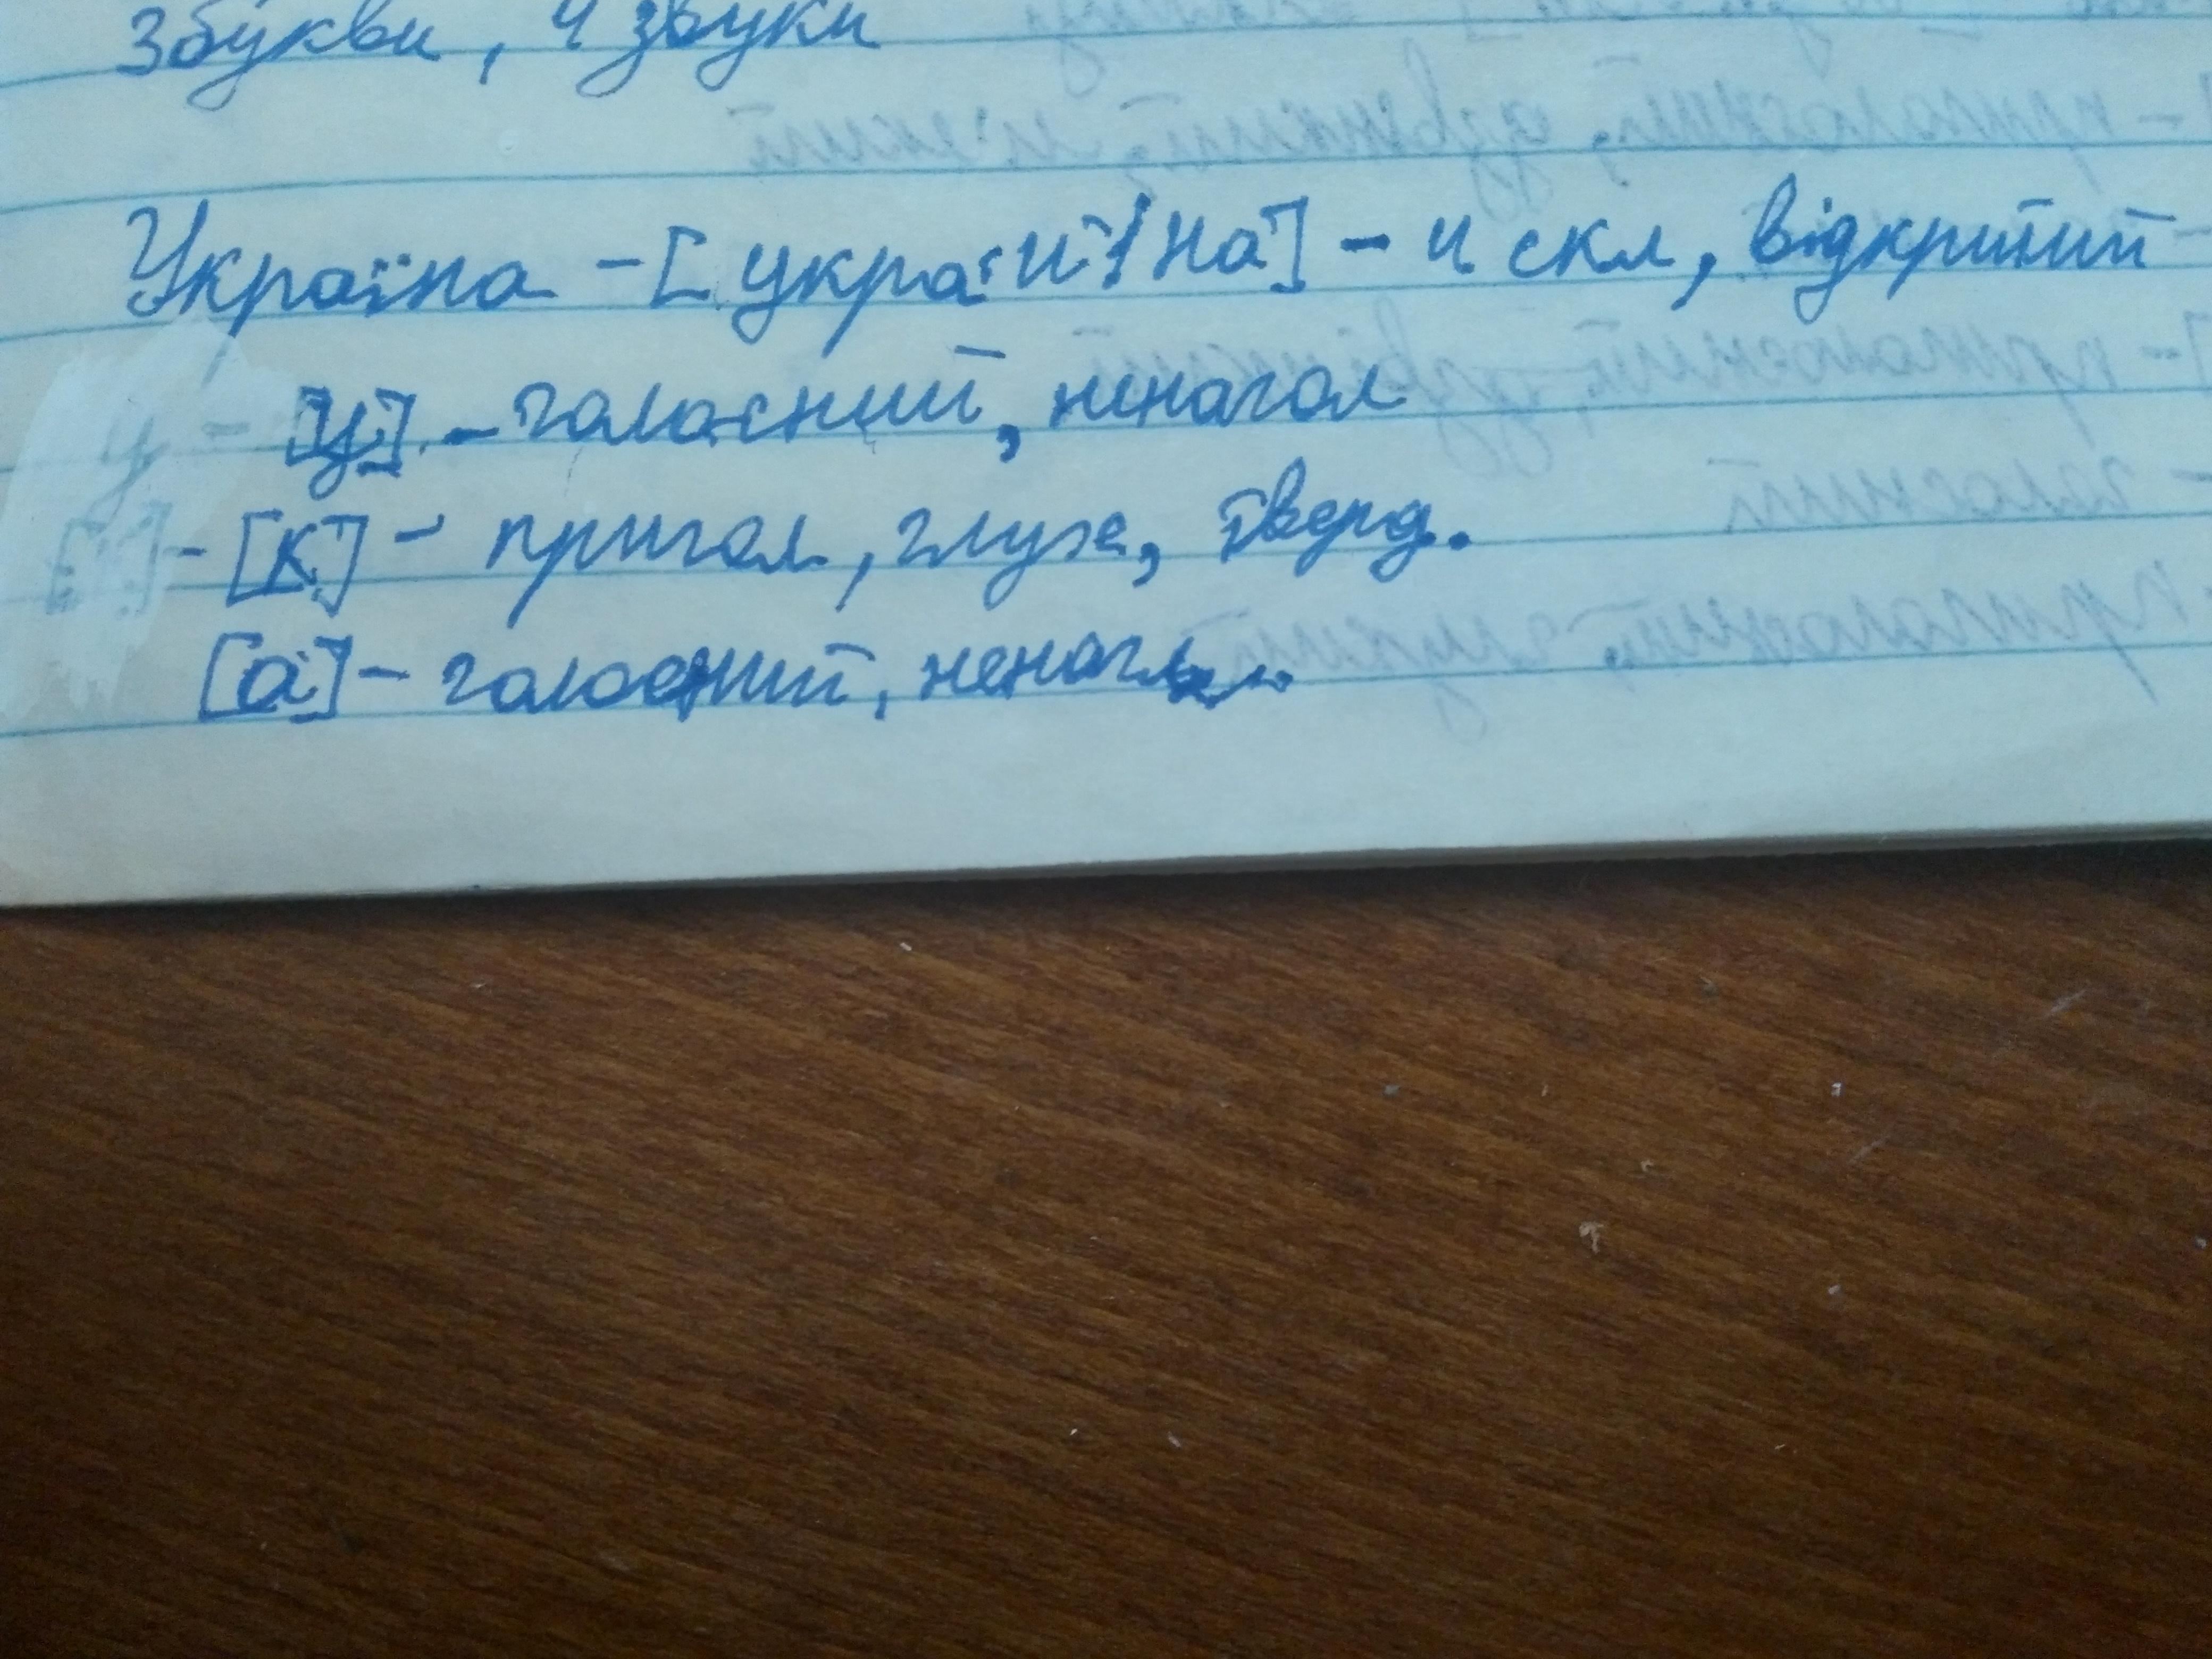 3 букви, 4 звуки
Україна - [украйіна] - 4 скл, відкритий
у - [у] - голосний, ненагол
- [к] - пригол, глухе, тверд.
[а] - голосний, ненагол.